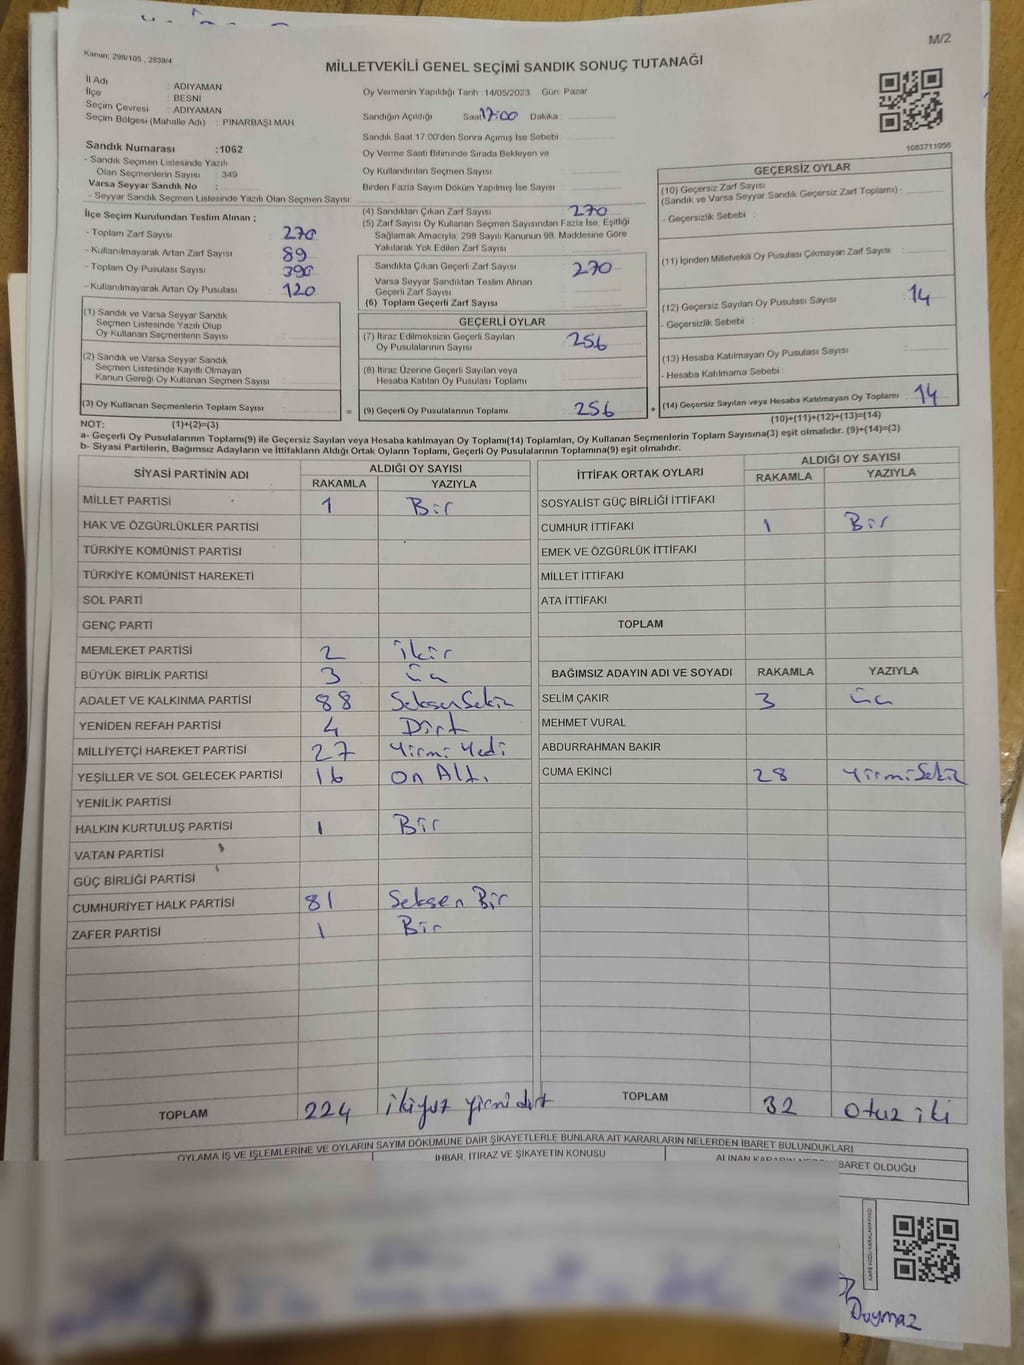 M/2
Kanun; 298/105 , 2839/4
MİLLETVEKİLİ GENEL SEÇİMİ SANDIK SONUÇ TUTANAĞI
İl Adı : ADIYAMAN
İlçe : BESNİ
Seçim Çevresi : ADIYAMAN
Seçim Bölgesi (Mahalle Adı) : PINARBAŞI MAH
Sandık Numarası :1062
- Sandık Seçmen Listesinde Yazılı
Olan Seçmenlerin Sayısı : 349
Varsa Seyyar Sandık No :
- Seyyar Sandık Seçmen Listesinde Yazılı Olan Seçmen Sayısı:
Oy Vermenin Yapıldığı Tarih :14/05/2023 Gün: Pazar
Sandığın Açıldığı Saat 17:00 Dakika :
Sandık Saat 17:00'den Sonra Açımış İse Sebebi :
Oy Verme Saati Bitiminde Sırada Bekleyen ve
Oy Kullandırılan Seçmen Sayısı
Birden Fazla Sayım Döküm Yapılmış İse Sayısı :
1083711056
İlçe Seçim Kurulundan Teslim Alınan ;
- Toplam Zarf Sayısı : 270
- Kullanılmayarak Artan Zarf Sayısı : 89
- Toplam Oy Pusulası Sayısı : 390
- Kullanılmayarak Artan Oy Pusulası : 120
(1) Sandık ve Varsa Seyyar Sandık
Seçmen Listesinde Yazılı Olup
Oy Kullanan Seçmenlerin Sayısı :
(2) Sandık ve Varsa Seyyar Sandık
Seçmen Listesinde Kayıtlı Olmayan
Kanun Gereği Oy Kullanan Seçmen Sayısı :
(3) Oy Kullanan Seçmenlerin Toplam Sayısı :
(4) Sandıktan Çıkan Zarf Sayısı : 270
(5) Zarf Sayısı Oy Kullanan Seçmen Sayısından Fazla İse, Eşitliği
Sağlamak Amacıyla; 298 Sayılı Kanunun 98. Maddesine Göre
Yakılarak Yok Edilen Zarf Sayısı :
Sandıkta Çıkan Geçerli Zarf Sayısı : 270
Varsa Seyyar Sandıktan Teslim Alınan
Geçerli Zarf Sayısı :
(6) Toplam Geçerli Zarf Sayısı :
GEÇERLİ OYLAR
(7) İtiraz Edilmeksizin Geçerli Sayılan
Oy Pusulalarının Sayısı : 256
(8) İtiraz Üzerine Geçerli Sayılan veya
Hesaba Katılan Oy Pusulası Toplamı :
= (9) Geçerli Oy Pusulalarının Toplamı : 256 +
GEÇERSİZ OYLAR
(10) Geçersiz Zarf Sayısı
(Sandık ve Varsa Seyyar Sandık Geçersiz Zarf Toplamı) :
- Geçersizlik Sebebi :
(11) İçinden Milletvekili Oy Pusulası Çıkmayan Zarf Sayısı :
(12) Geçersiz Sayılan Oy Pusulası Sayısı : 14
- Geçersizlik Sebebi :
(13) Hesaba Katılmayan Oy Pusulası Sayısı :
- Hesaba Katılmama Sebebi :
(14) Geçersiz Sayılan veya Hesaba Katılmayan Oy Toplamı : 14
NOT: (1)+(2)=(3)
(10)+(11)+(12)+(13)=(14)
a- Geçerli Oy Pusulalarının Toplamı(9) ile Geçersiz Sayılan veya Hesaba katılmayan Oy Toplamı(14) Toplamları, Oy Kullanan Seçmenlerin Toplam Sayısına(3) eşit olmalıdır. (9)+(14)=(3)
b- Siyasi Partilerin, Bağımsız Adayların ve İttifakların Aldığı Oyların Toplamı, Geçerli Oy Pusulalarının Toplamına(9) eşit olmalıdır.
SİYASİ PARTİNİN ADI ALDIĞI OY SAYISI
RAKAMLA YAZIYLA
MİLLET PARTİSİ 1 Bir
HAK VE ÖZGÜRLÜKLER PARTİSİ
TÜRKİYE KOMÜNİST PARTİSİ
TÜRKİYE KOMÜNİST HAREKETİ
SOL PARTİ
GENÇ PARTİ
MEMLEKET PARTİSİ 2
BÜYÜK BİRLİK PARTİSİ 3 üç
ADALET VE KALKINMA PARTİSİ 88 Seksen Sekiz
YENİDEN REFAH PARTİSİ 4 Dört
MİLLİYETÇİ HAREKET PARTİSİ 27 Yirmi Yedi
YEŞİLLER VE SOL GELECEK PARTİSİ 16 on Altı
YENİLİK PARTİSİ
HALKIN KURTULUŞ PARTİSİ 1 Bir
VATAN PARTİSİ
GÜÇ BİRLİĞİ PARTİSİ
CUMHURİYET HALK PARTİSİ 81 Seksen Bir
ZAFER PARTİSİ 1 Bir
TOPLAM 224 ikiyüz yirmi dört
İTTİFAK ORTAK OYLARI ALDIĞI OY SAYISI
RAKAMLA YAZIYLA
SOSYALİST GÜÇ BİRLİĞİ İTTİFAKI
CUMHUR İTTİFAKI 1 Bir
EMEK VE ÖZGÜRLÜK İTTİFAKI
MİLLET İTTİFAKI
ATA İTTİFAKI
TOPLAM
BAĞIMSIZ ADAYIN ADI VE SOYADI RAKAMLA YAZIYLA
SELİM ÇAKIR 3 üç
MEHMET VURAL
ABDURRAHMAN BAKIR
CUMA EKİNCİ 28 Yirmi Sekiz
TOPLAM 32 otuz iki
OYLAMA İŞ VE İŞLEMLERİNE VE OYLARIN SAYIM DÖKÜMÜNE DAİR ŞİKAYETLERLE BUNLARA AİT KARARLARIN NELERDEN İBARET BULUNDUKLARI
İHBAR, İTİRAZ VE ŞİKAYETİN KONUSU
ALINAN KARARIN NEDEN İBARET OLDUĞU
Duymaz